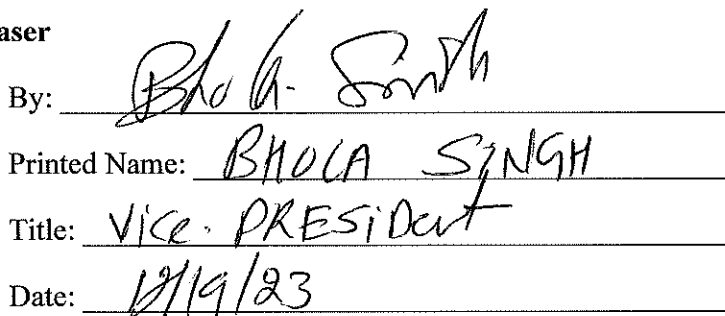 aser
By: Bhola Singh
Printed Name: BHOLA SINGH
Title: Vice. PRESiDent
Date: 12/19/23